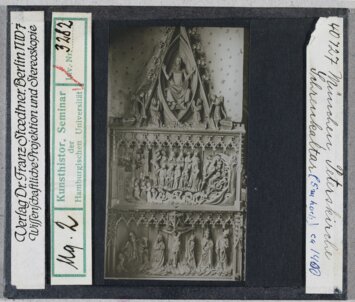 Verlag Dr. Franz Stoedtner, Berlin NW7
Wissenschaftliche Projektion und Stereoskopie
Kunsthistor. Seminar
der
Hamburgischen Universität
Inv. N. 3282
Mg. 2
40727 München Peterskirche
Schrenkaltar (5m hoch) ca 1400